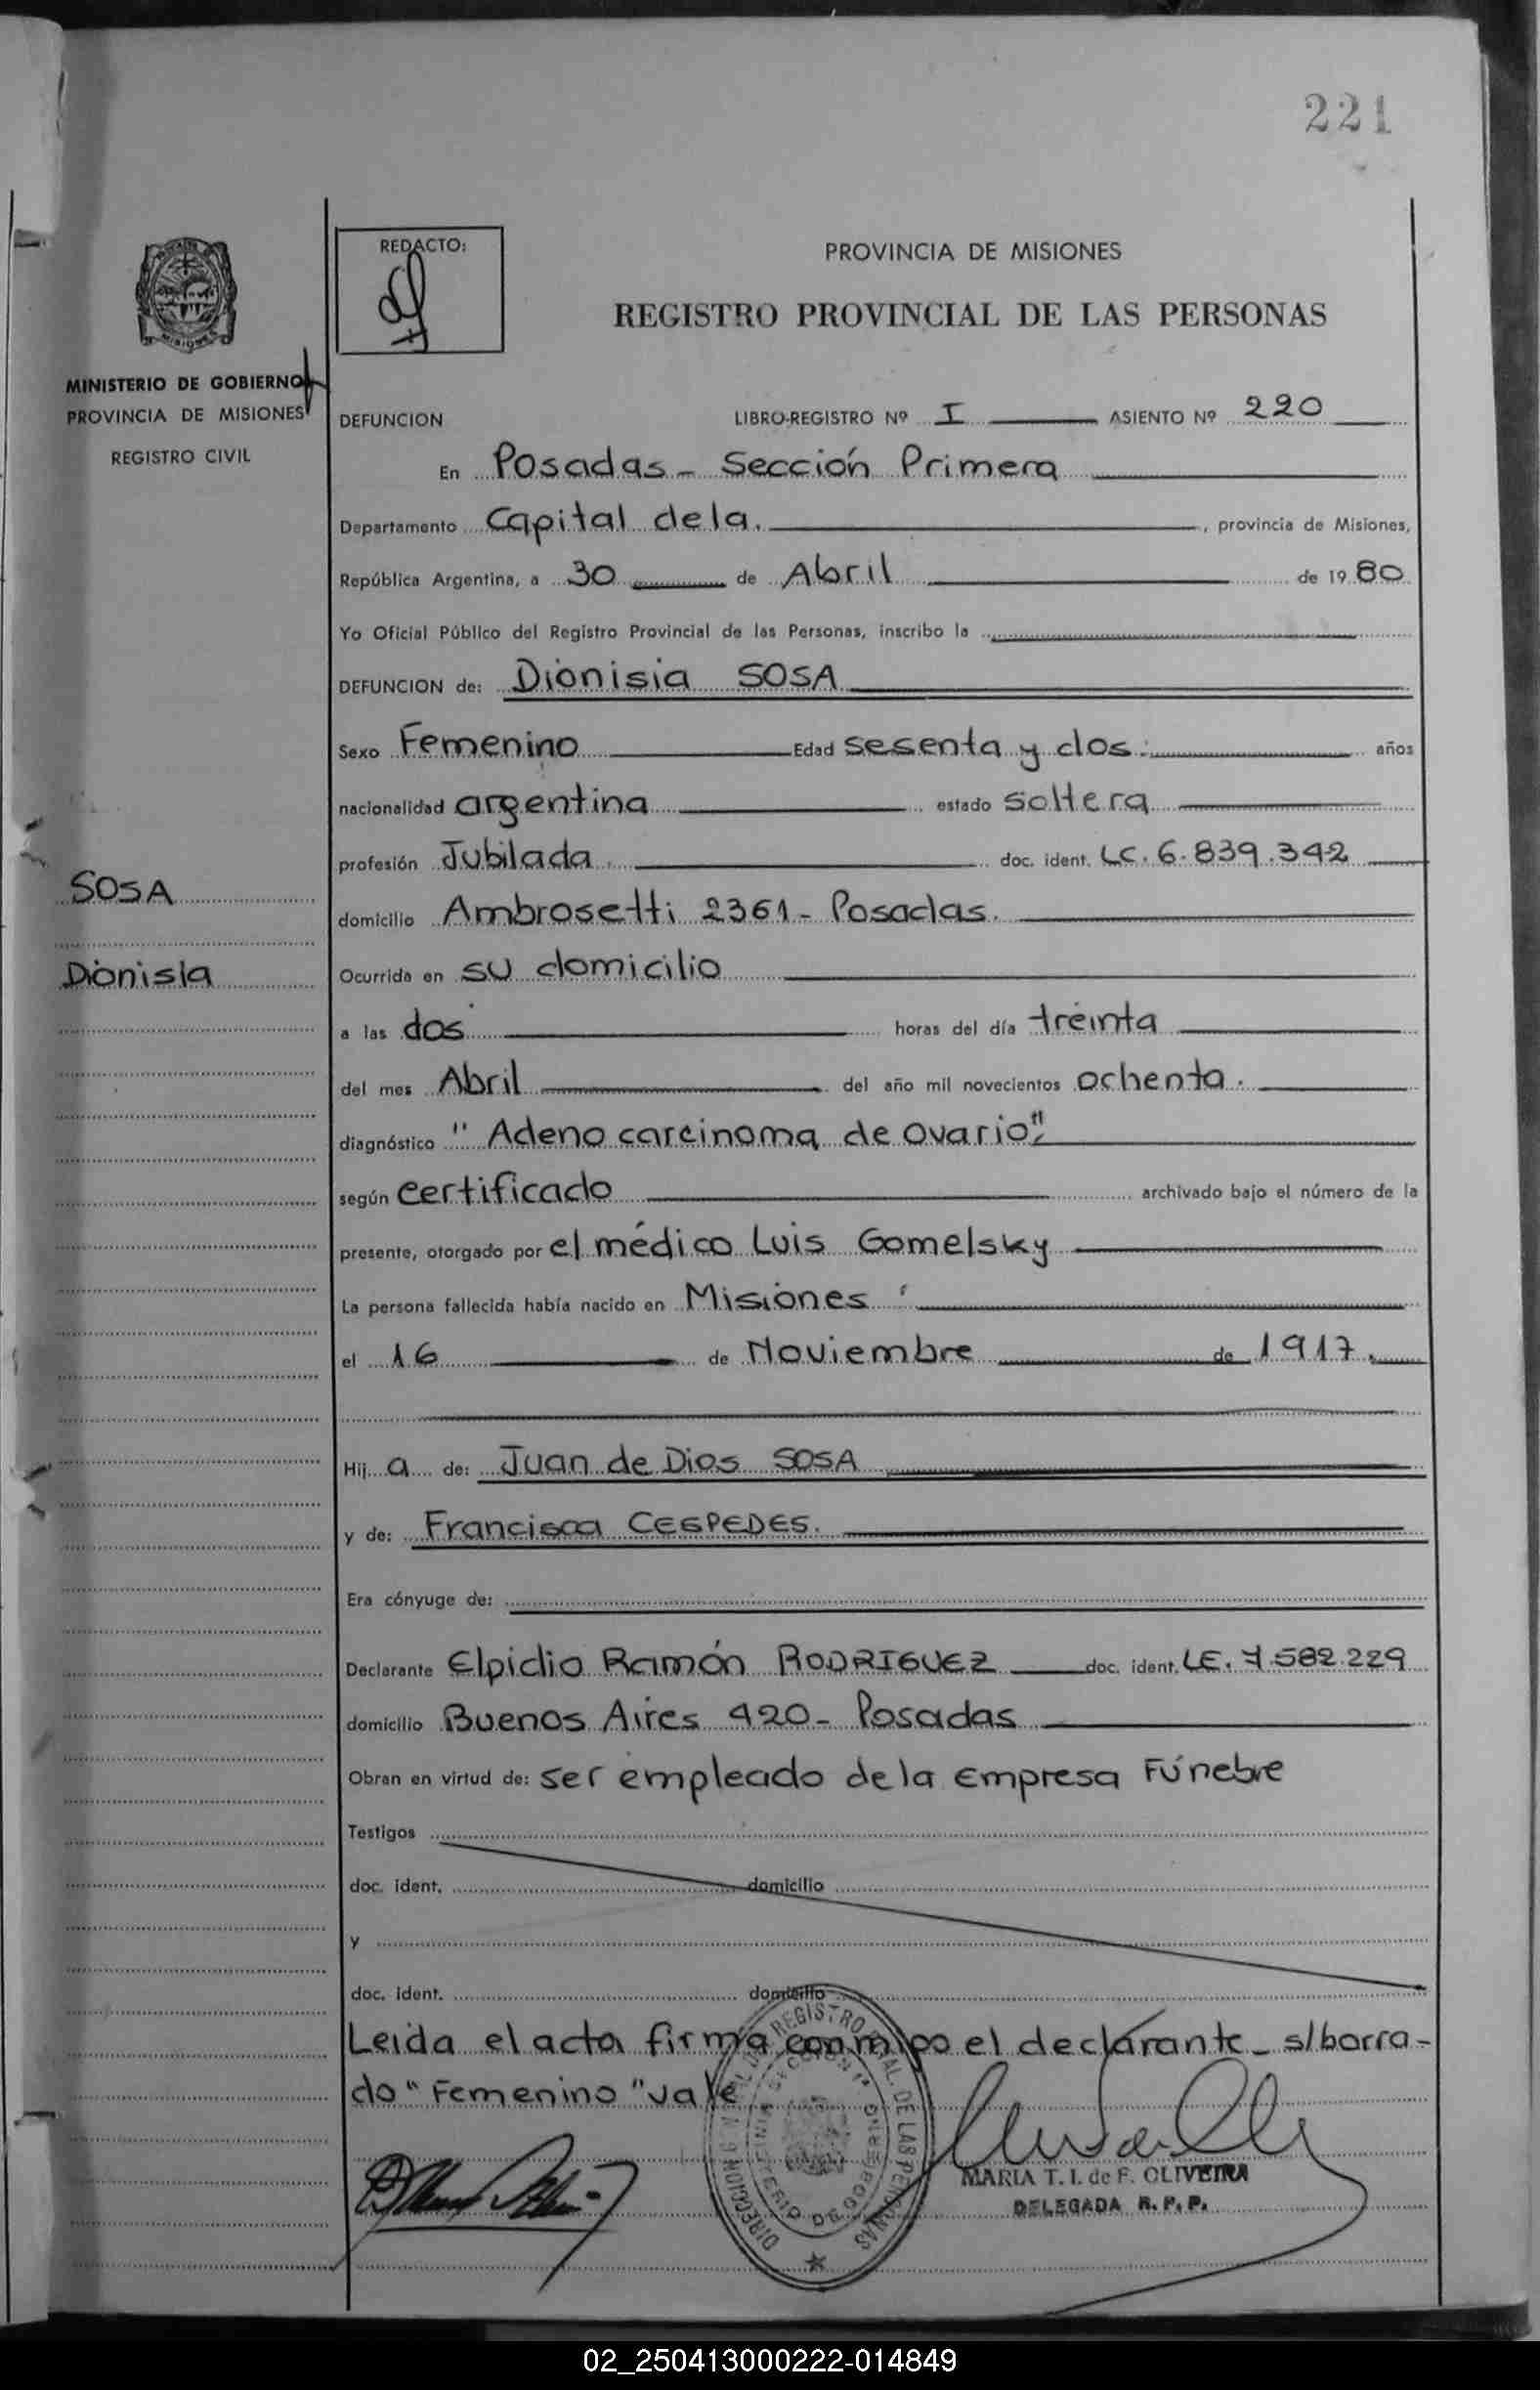 221
REDACTO:
PROVINCIA DE MISIONES
REGISTRO PROVINCIAL DE LAS PERSONAS
MINISTERIO DE GOBIERNO
PROVINCIA DE MISIONES
REGISTRO CIVIL
DEFUNCION LIBRO-REGISTRO Nº I ASIENTO Nº 220
En Posadas - Sección Primera
Departamento Capital de la. , provincia de Misiones,
República Argentina, a 30 de Abril de 1980
Yo Oficial Público del Registro Provincial de las Personas, inscribo la
DEFUNCION de: Dionisia SOSA
Sexo Femenino Edad sesenta y dos. años
nacionalidad argentina estado soltera
profesión Jubilada. doc. ident. LC. 6.839.342
SOSA
domicilio Ambrosetti 2361- Posadas.
Dionisia
Ocurrida en su domicilio
a las dos horas del día treinta
del mes Abril del año mil novecientos ochenta.
diagnóstico "Adeno carcinoma de ovario".
según certificado archivado bajo el número de la
presente, otorgado por el médico Luis Gomelsky
La persona fallecida había nacido en Misiones
el 16 de Noviembre de 1917.
Hij a de: Juan de Dios SOSA
y de: Francisca CESPEDES.
Era cónyuge de:
Declarante Elpidio Ramón RODRIGUEZ doc. ident. LE. 7.582.229
domicilio Buenos Aires 420- Posadas
Obran en virtud de: ser empleado de la Empresa Fúnebre
Testigos
doc. ident. domicilio
y
doc. ident. domicilio
Leida el acta firma conmigo el declarante - s/borra-
do "Femenino" vale
MARIA T. I. de F. OLIVEIRA
DELEGADA R. P. P.
02_250413000222-014849